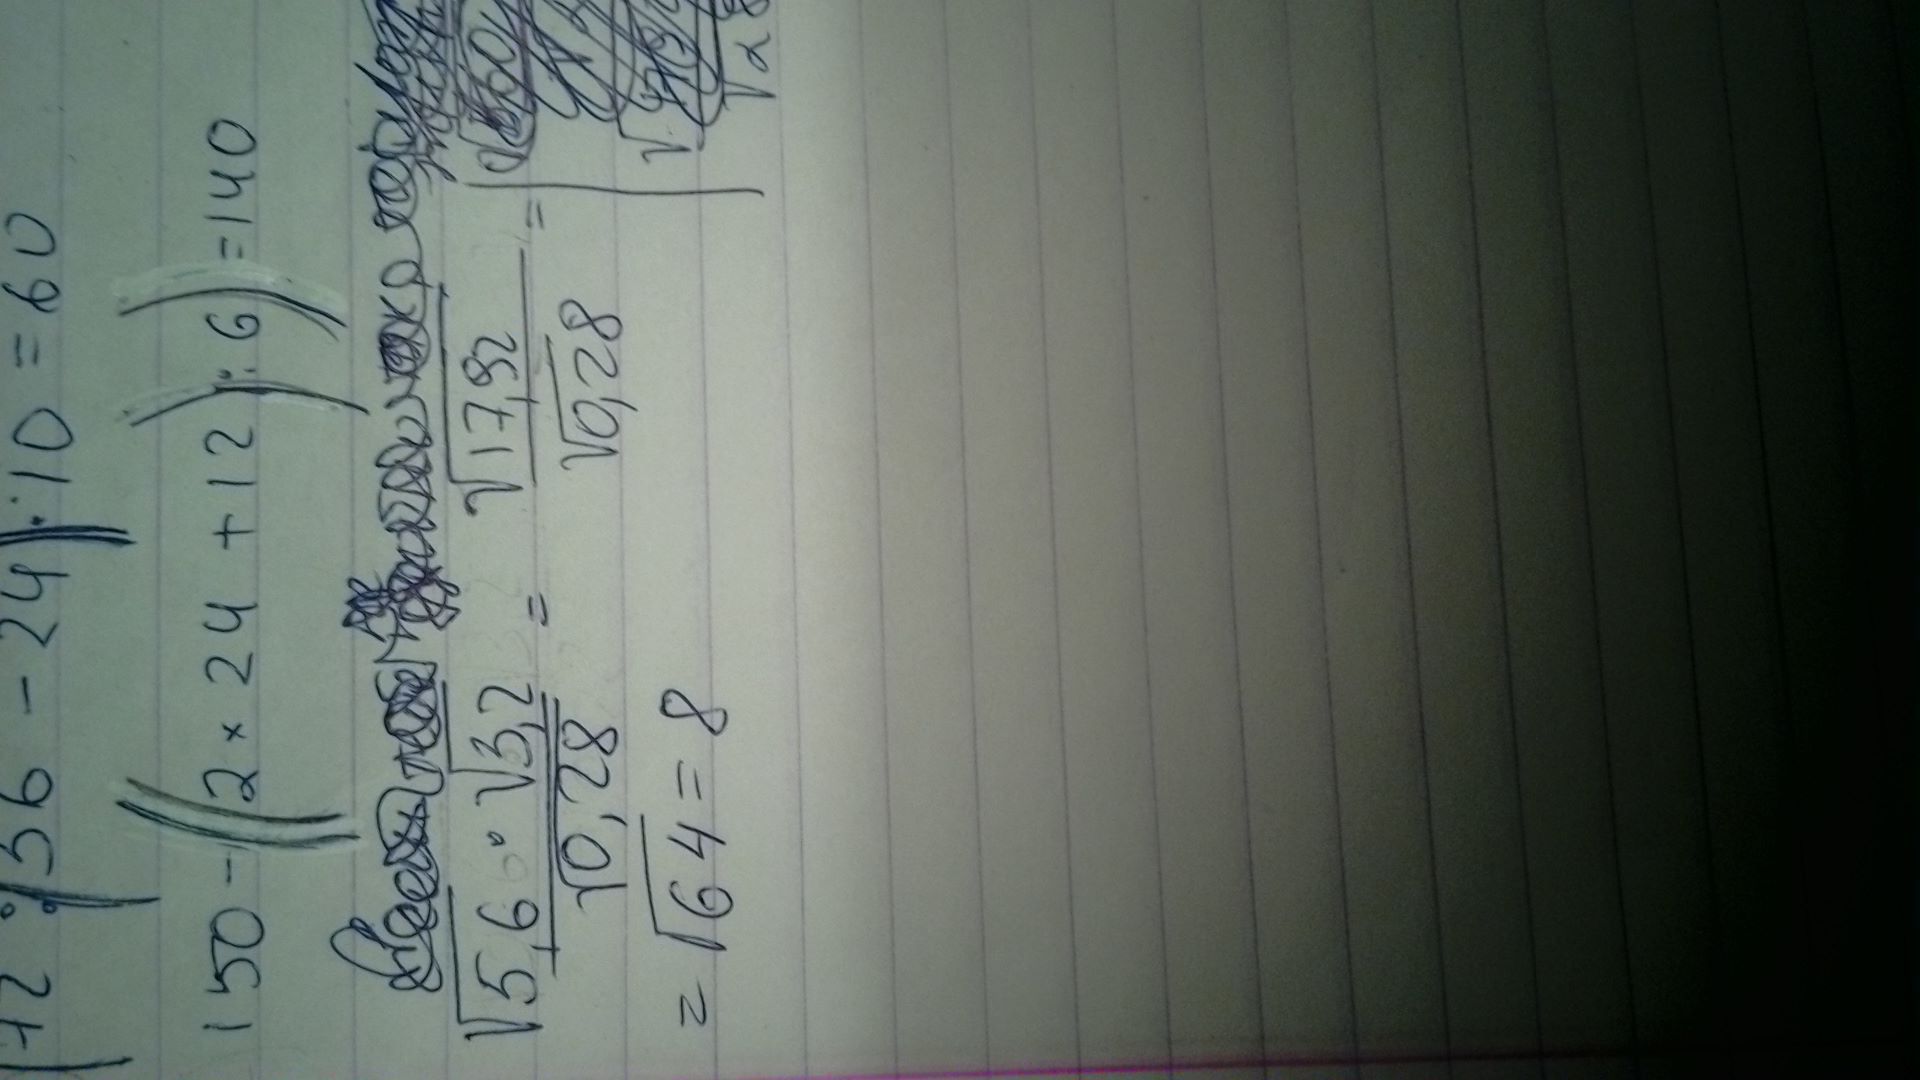 72 : (56 - 24) : 10 = 60
150 - (2 × 24 + 12) : 6) = 140
√5,6 · √3,2 / √0,28 = √17,92 / √0,28 =
= √64 = 8